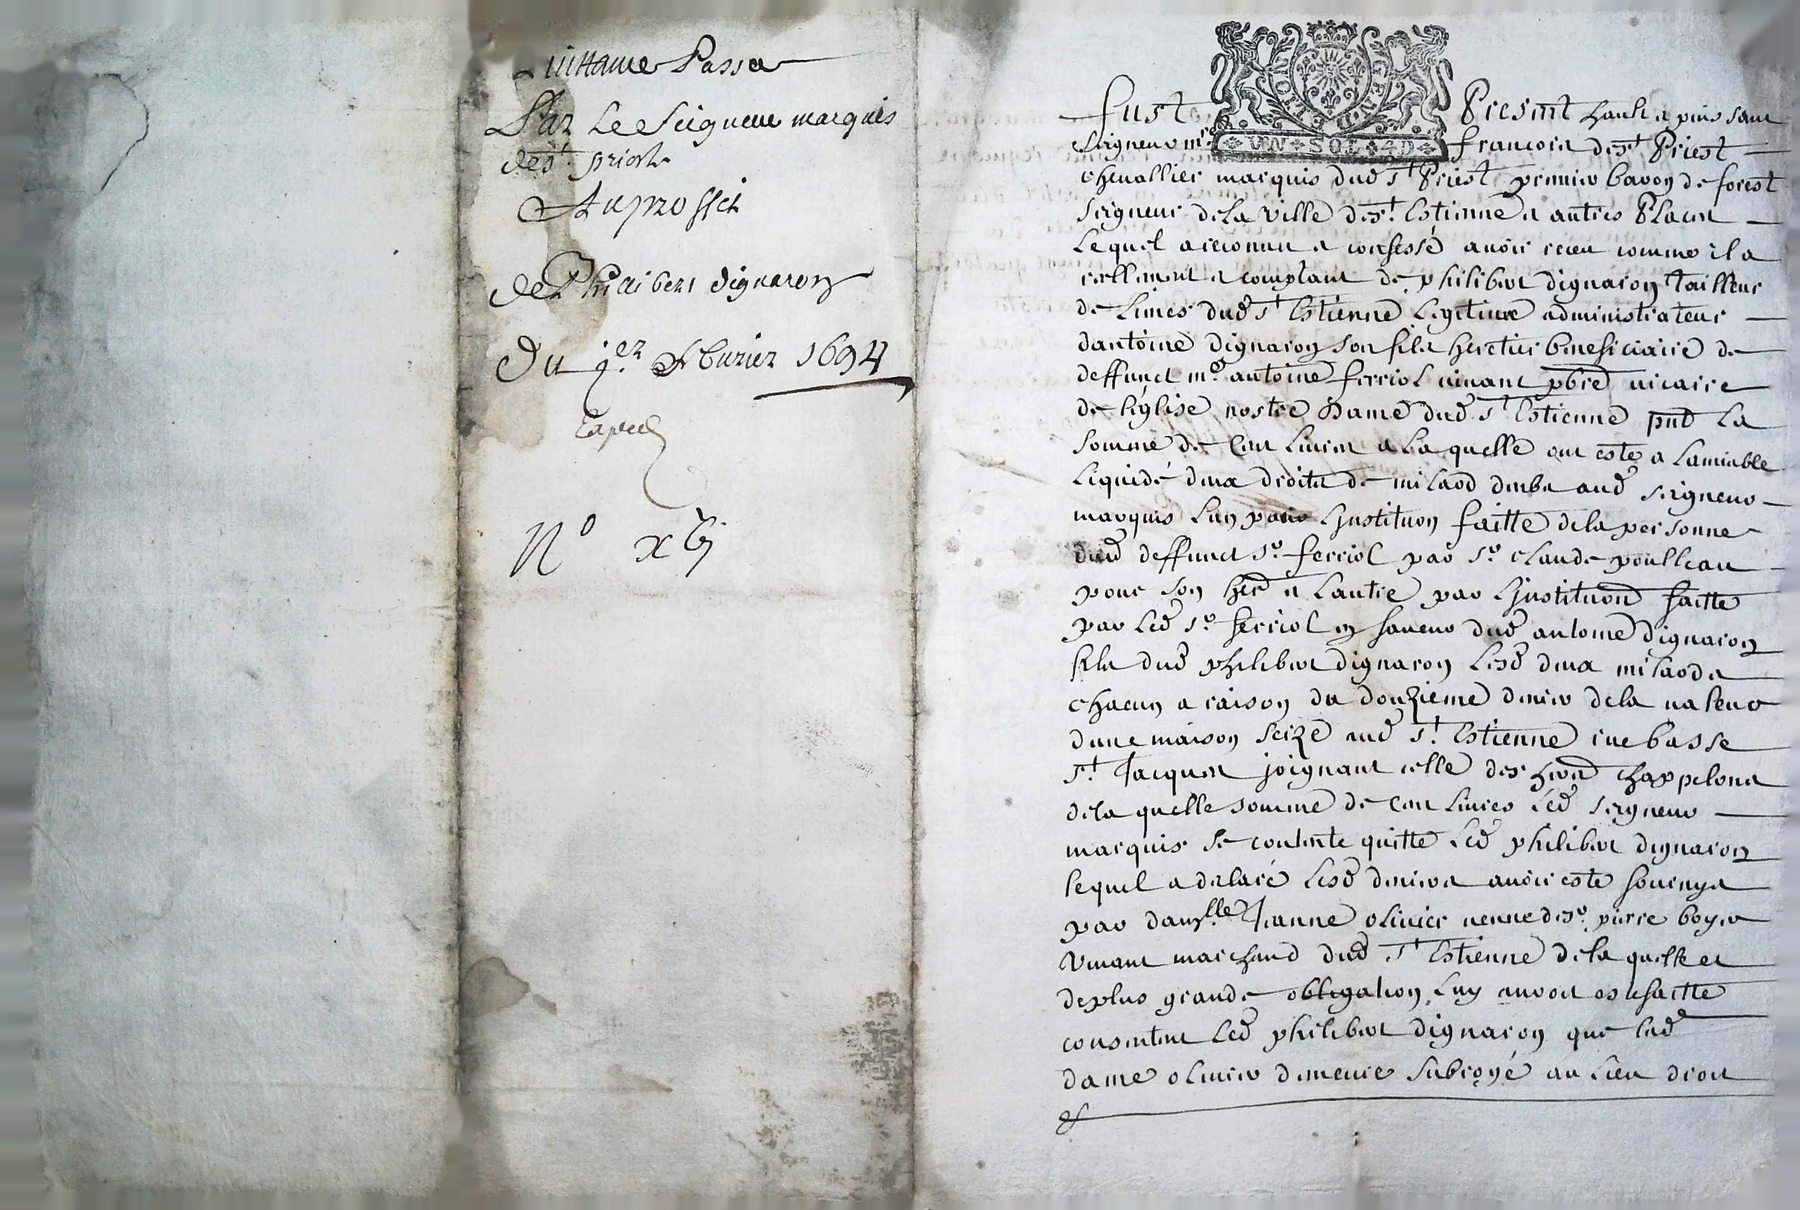 Quittance Passé
Par Le Seigneur marquis
de st. priest
Au proffict
de Philibert dignaron
Du 1er. febvrier 1694
No xbj
GENERALITE LYON
VN SOL 4D
Fust Present hault et puissant
Seigneur mre francois de st. Priest
chevallier marquis dud st Priest premier baron de forest
seigneur de la ville de st. Estienne et autres Places
Lequel a reconnu et confessé avoir receu comme il a
reellement et comptant de philibert dignaron tailleur
de Limes dud st Estienne Legitime administrateur
dantoine dignaron son fils heretier beneficiaire de
deffunct mre antoine ferriol vivant pbre vicaire
de leglise nostre dame dud st Estienne pnt La
somme de Cent Livres a La quelle ont este a Lamiable
Liquidé deux droits de milaod deubs aud seigneur
marquis Lun pour Linstituon faitte de la personne
dud deffunct sr. ferriol par sr. claude poulleau
pour son her et Lautre par Linstitution faitte
par Led sr. ferriol en faveur dud antoine dignaron
fils dud philibert dignaron Lesd deux milaods
chacun a raison du douzieme denier de la valleur
dune maison seize aud st. Estienne rue basse
st. Jacques joignant celle des hers chappelons
de la quelle somme de Cent Livres Led seigneur
marquis se contente quitte Led philibert dignaron
lequel a declaré Lesd deniers avoir este fournys
par damlle. Jeanne olivier veuve de sr. pierre boyer
vivant marchand dud st Estienne de la quelle et
de plus grande obligation Luy avoir este faitte
consentent Led philibert dignaron que lad
dame olivier demeure subrogé au Lieu droit
&